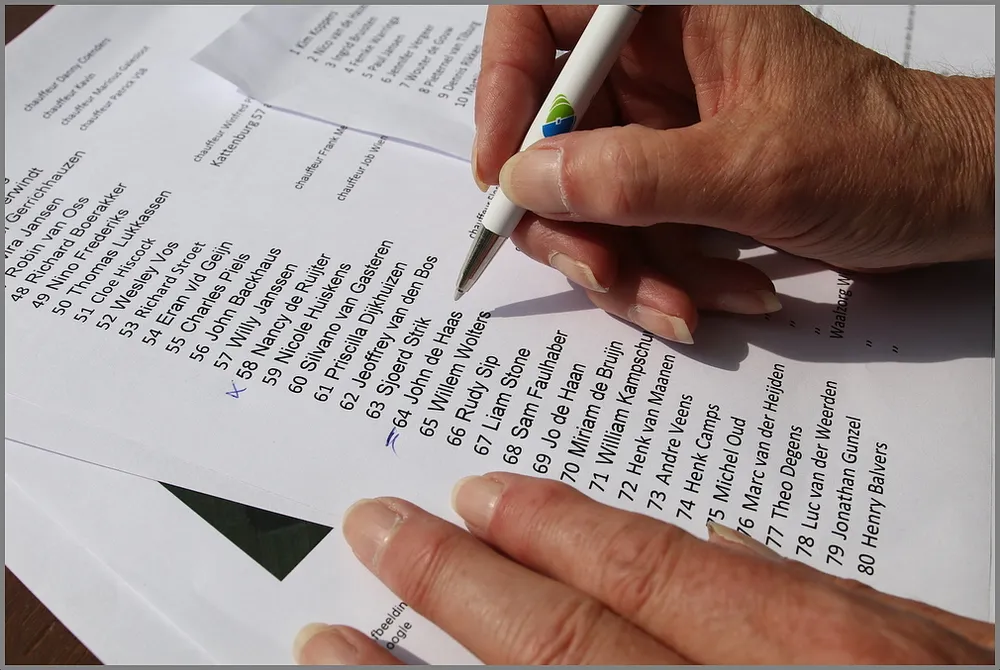 chauffeur Danny Coenders
chauffeur Kevin
chauffeur Marinus
chauffeur Patrick VSB
chauffeur Winfred
Kattenburg 57
chauffeur Frank
chauffeur Job
1 Kim Koppers
2 Nico van de
3 Ingrid Brusten
4 Femke Warringa
5 Paul Jansen
6 Jennifer Vergeer
7 Wouter de Gouw
8 Pieternel van Tilburg
9 Dennis
10
Gerrichhauzen
Jansen
Robin van Oss
48 Richard Boerakker
49 Nino Frederiks
50 Thomas Lukkassen
51 Cloe Hiscock
52 Wesley Vos
53 Richard Stroet
54 Eran v/d Geijn
55 Charles Piels
56 John Backhaus
57 Willy Janssen
58 Nancy de Ruijter
59 Nicole Huiskens
60 Silvano van Gasteren
61 Priscilla Dijkhuizen
62 Jeoffrey van den Bos
63 Sjoerd Strik
64 John de Haas
65 Willem Wolters
66 Rudy Sip
67 Liam Stone
68 Sam Faulhaber
69 Jo de Haan
70 Miriam de Bruijn
71 William Kampschu
72 Henk van Maanen
73 Andre Veens
74 Henk Camps
75 Michel Oud
76 Marc van der Heijden
77 Theo Degens
78 Luc van der Weerden
79 Jonathan Gunzel
80 Henry Balvers
Waalzorg W
" "
" "
fbeeldin
oogle